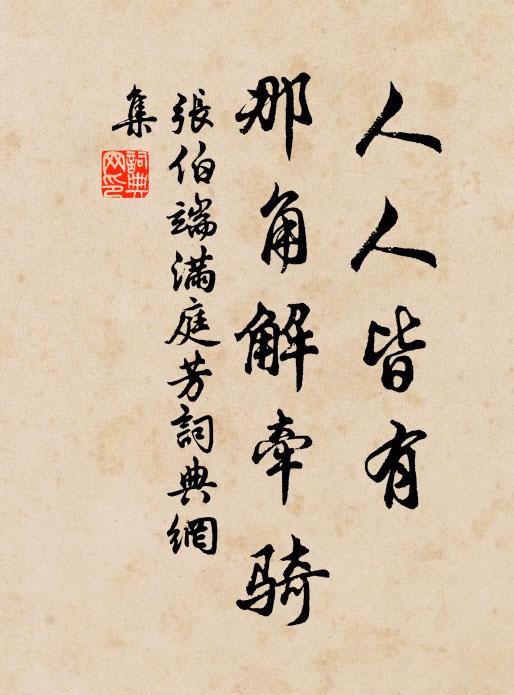 人人皆有
那角解牵骑
張伯端滿庭芳詞典網
集
詞典
网印